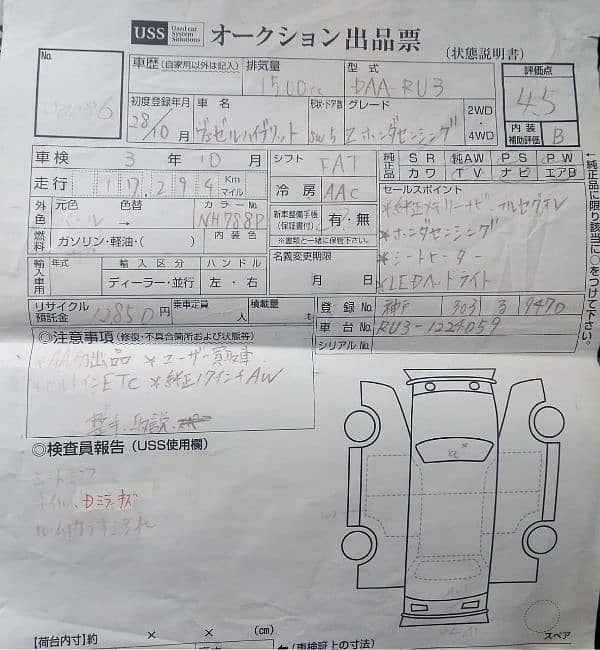 USS Used car System Solutions オークション 出品票 (状態説明書)
No.
車歴 (自家用以外は記入) 排気量 型式 評価点
1500cc DAA-RU3 4.5
初度登録年月 車名 形状・ドア数 グレード 2WD・4WD 内装補助評価 B
28/10月 ヴェゼルハイブリット SW5 Zホンダセンシング
車検 3年10月 シフト FAT
純正品 SR 純AW PS PW
カワ TV ナビ エアB
走行 17,294 Km マイル 冷房 AAC
セールスポイント
外色 元色 色替 カラーNo. NH788P
新車整備手帳 (保証書付) 有・無
※書類と一緒に保管下さい。
*純正メモリーナビ フルセグTV
*ホンダセンシング
*シートヒーター
*LEDヘッドライト
燃料 ガソリン・軽油・( ) 内装色
名義変更期限 月 日
輸入車用 年式 輸入区分 ハンドル
ディーラー・並行 左・右
←純正品に限り該当に○をつけて下さい。
リサイクル預託金 12850円 乗車定員 人 積載量 t
登録No. 神戸 303 る 9470
車台No. RU3-1224059
シリアルNo.
◎注意事項 (修復・不具合箇所および状態等)
*AA初出品 *ユーザー買取車
ETC *純正17インチAW
◎検査員報告 (USS使用欄)
スペア
【荷台内寸】約 × × (cm)
←(車検証上の寸法)